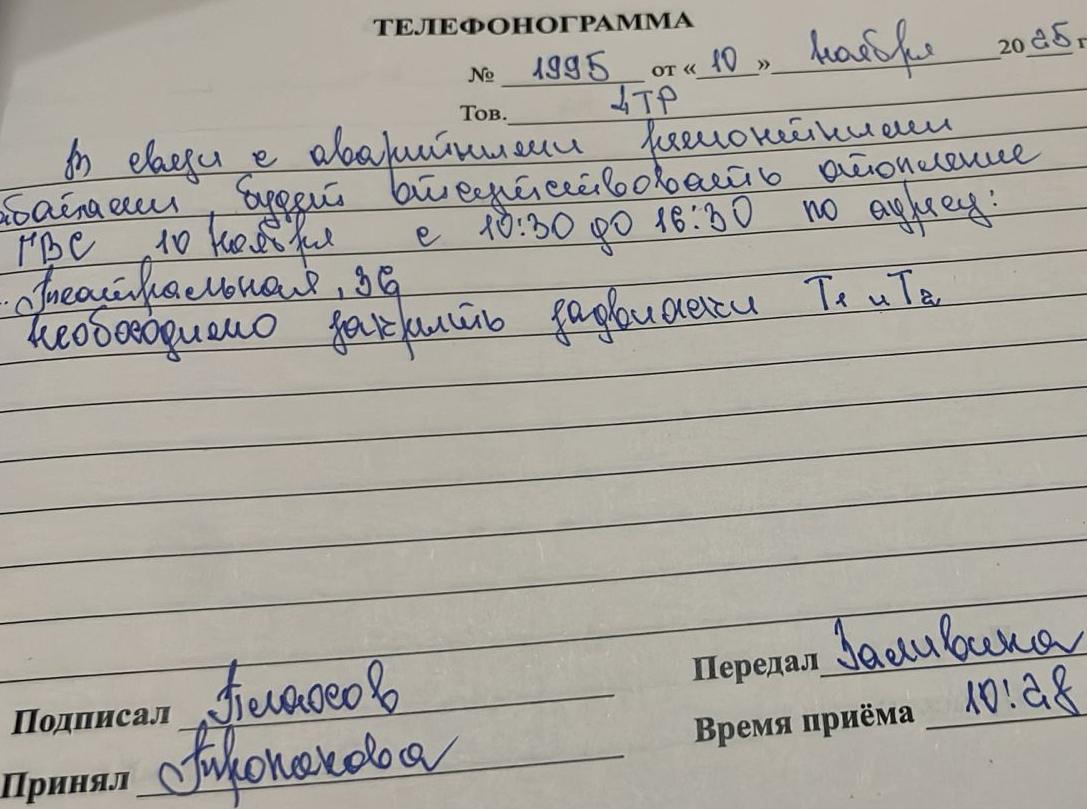 ТЕЛЕФОНОГРАММА
№ 1995 от «10» ноября 2025 г
Тов. ЦТР
В связи с аварийными ремонтными
работами, будет отсутствовать отопление
ГВС 10 ноября с 10:30 до 16:30 по адресу:
Театральная, 36
необходимо закрыть задвижки Т1 и Т2
Подписал Власов
Передал Заливина
Время приёма 10:28
Принял